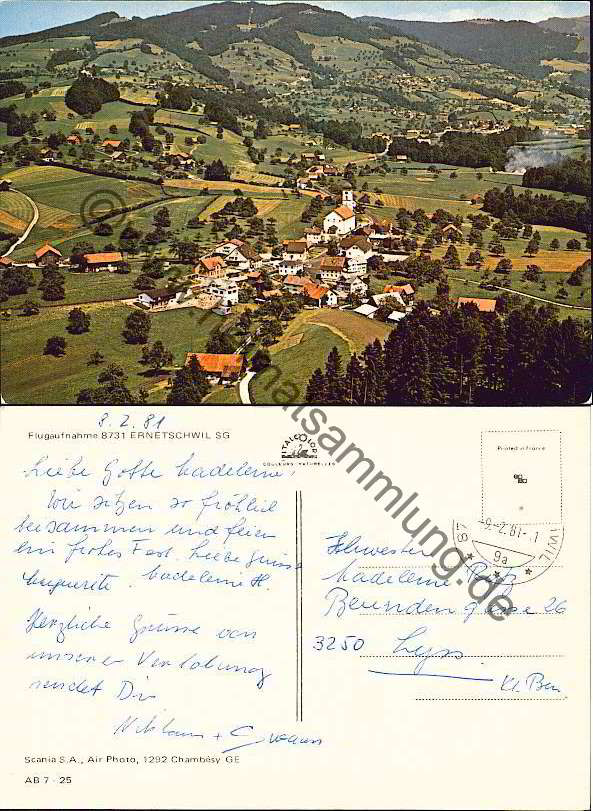 8.2.81
Flugaufnahme 8731 ERNETSCHWIL SG
Liebe Gotte Madeleine!
Wir sitzen so fröhlich
beisammen und feiern
ein frohes Fest. Liebe Grüsse
Marguerite. Madeleine H.
Herzliche Grüsse von
unserer Verlobung
sendet Dir
Niklaus +
Scania S.A., Air Photo, 1292 Chambésy GE
AB 7 - 25
COULEURS NATURELLES
Printed in France
-9-2.81-1
87
WIL
9a
Schwester
Madeleine
Beundengasse 26
3250 Lyss
Kt. Bern
©
ansichtskartensammlung.de